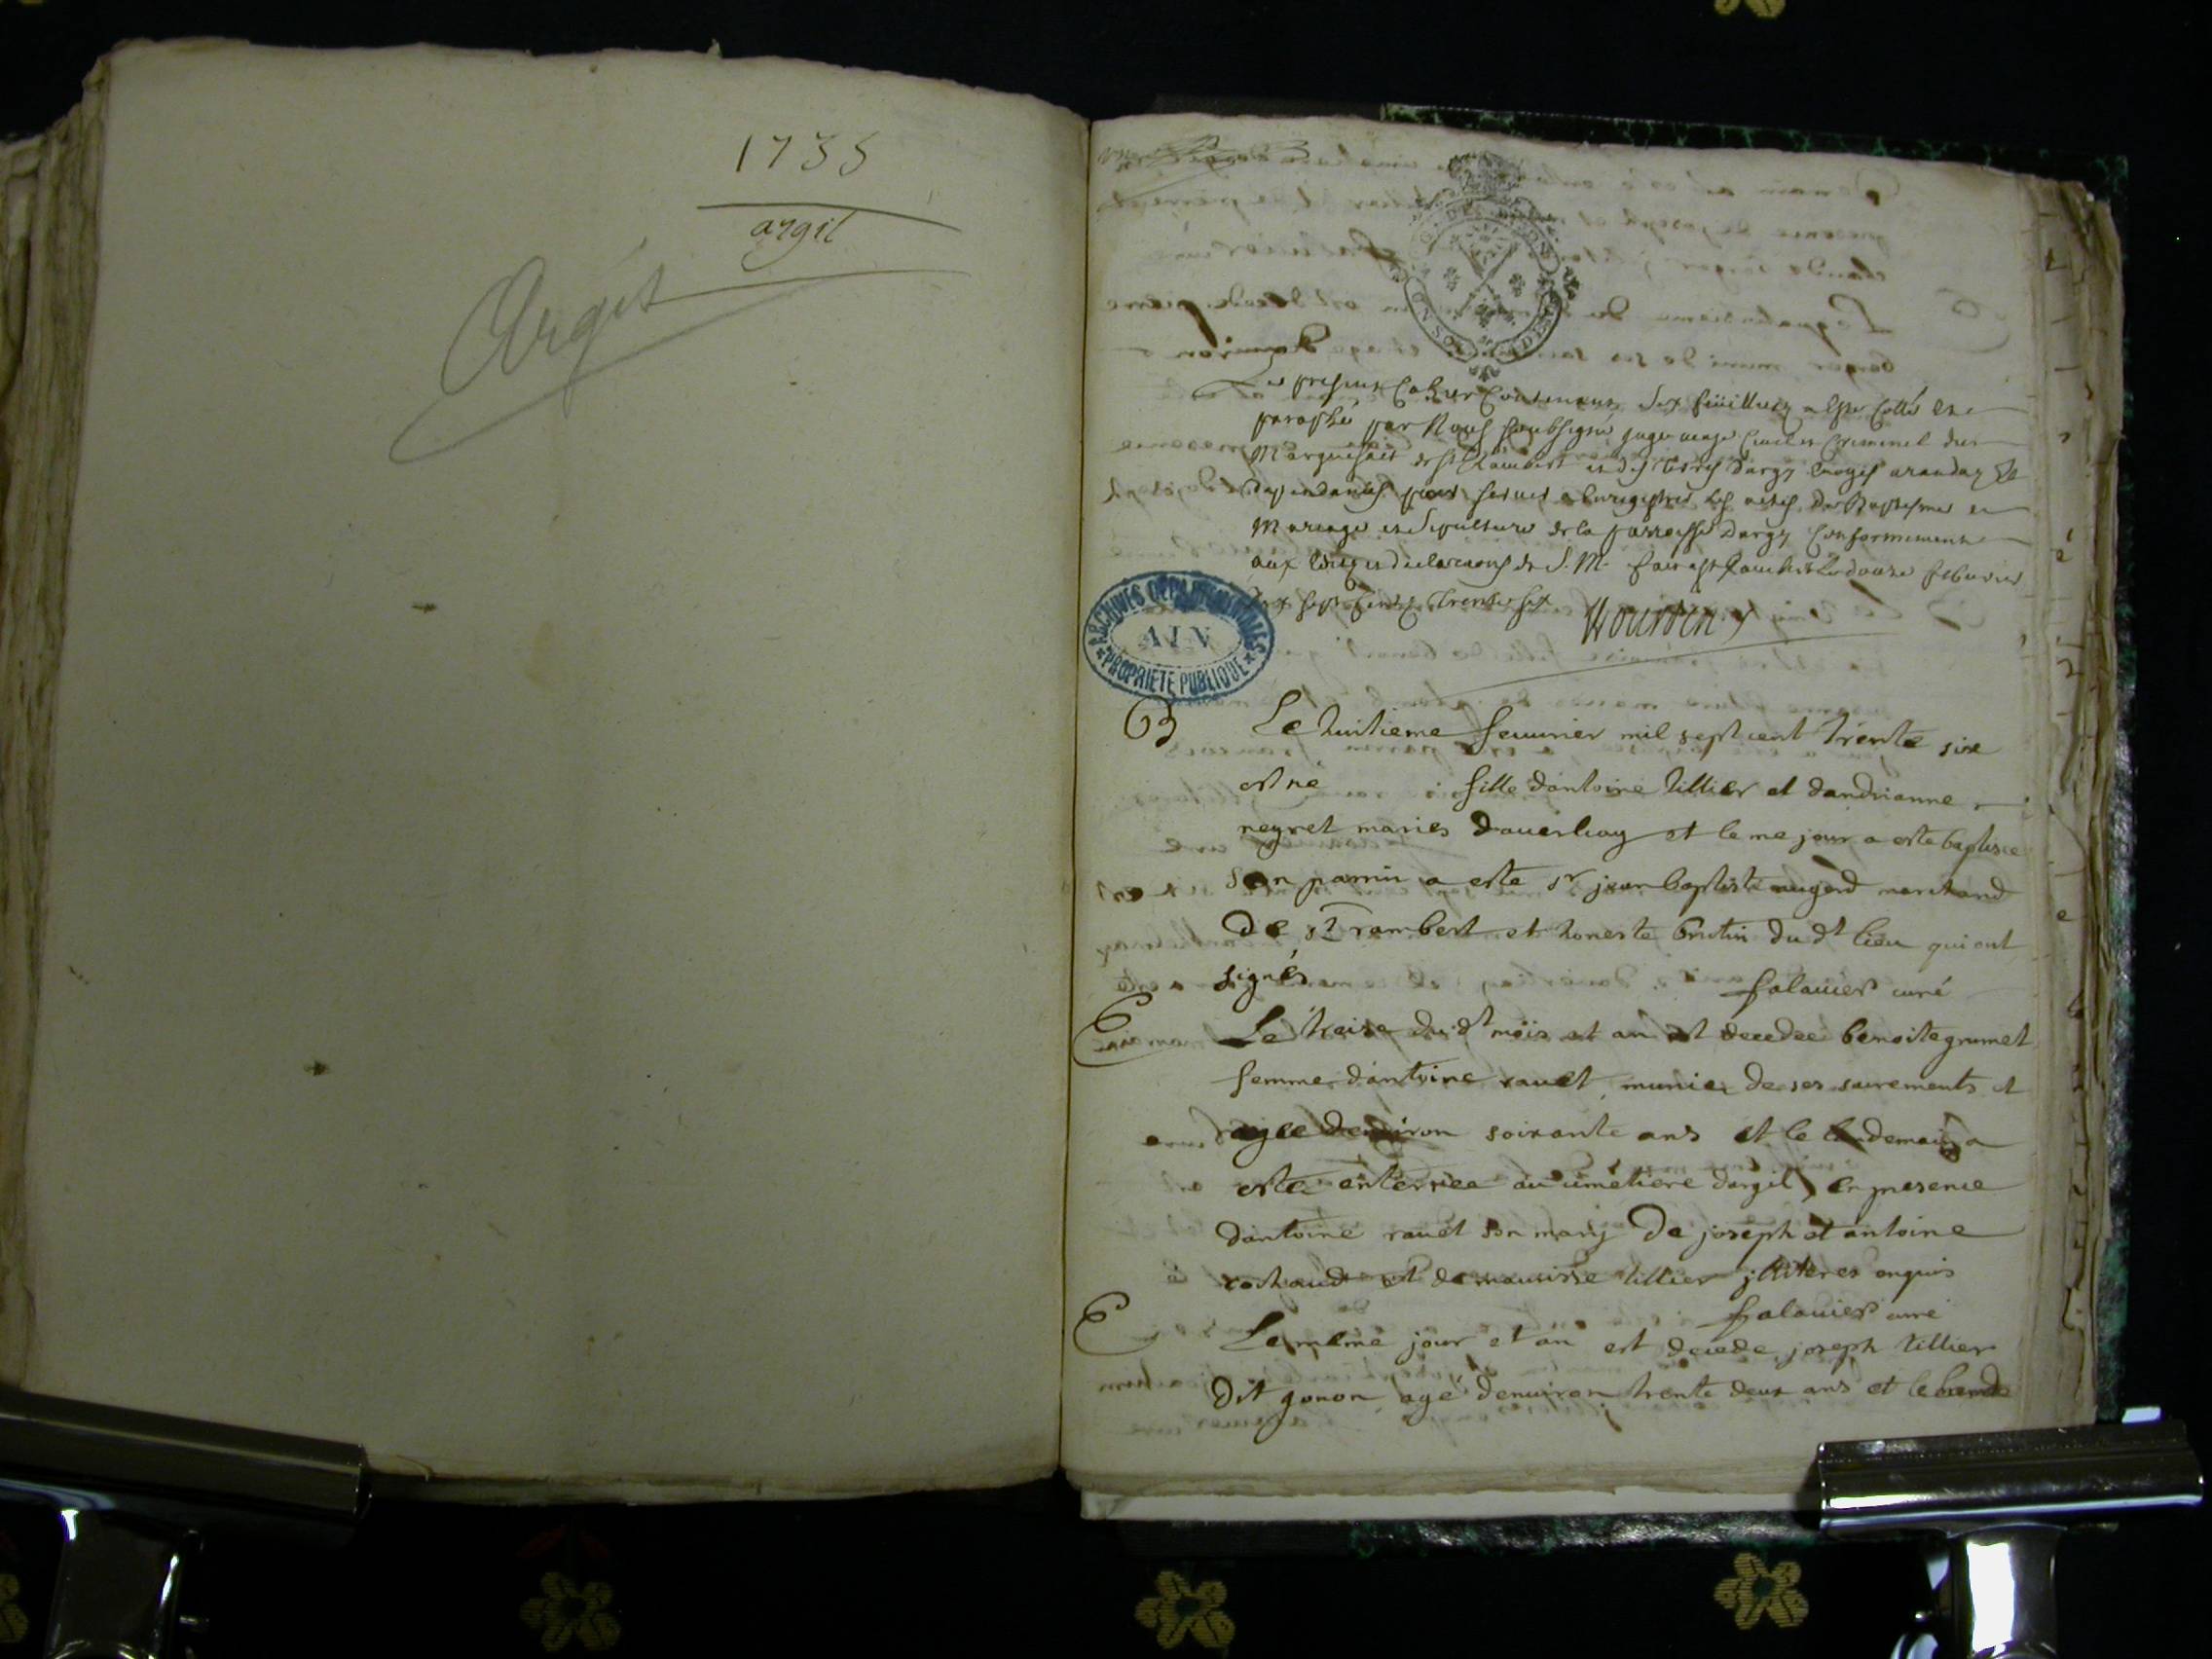 1735
argil
Argis
Le present Cahier Contenant six feüillets a esté Cotté et
paraphé par Nous soubsigné juge mage civil et Criminel du
Marquisat de St Rambert et des terres dargy Evoges aranday et
dependantes pour servir a Enregistrer les actes de Baptesme
Mariage et Sepulture de la parroisse Dargy Conformement
aux Edits et declarations de S. M. fait a St Rambert le douze febvrier
sept Cents Trente six
ARCHIVES DEPARTEMENTALES
AIN
PROPRIETE PUBLIQUE
B
Le huitieme feuurier mil sept cent trente six
est né fille dantoine tillier et dandrianne
neyret maries dauerliay et le me jour a este baptisée
son parrin a este sr jean baptiste augerd marchand
De st rambert et honeste brutin du dt lieu qui ont
signés
falauier curé
E
Le treise du dt mois et an est decedee benoite grumet
femme dantoine rauet munie de ses sacrements et
agee denuiron soixante ans et le lendemain a
este enterrée au cimetiere dargil en presence
dantoine rauet son mary De joseph et antoine
rochaud et de maurisse tillier jlliteres enquis
falauier curé
E
Le même jour et an est decede joseph tillier
dit gonon agé denuiron trente deux ans et le